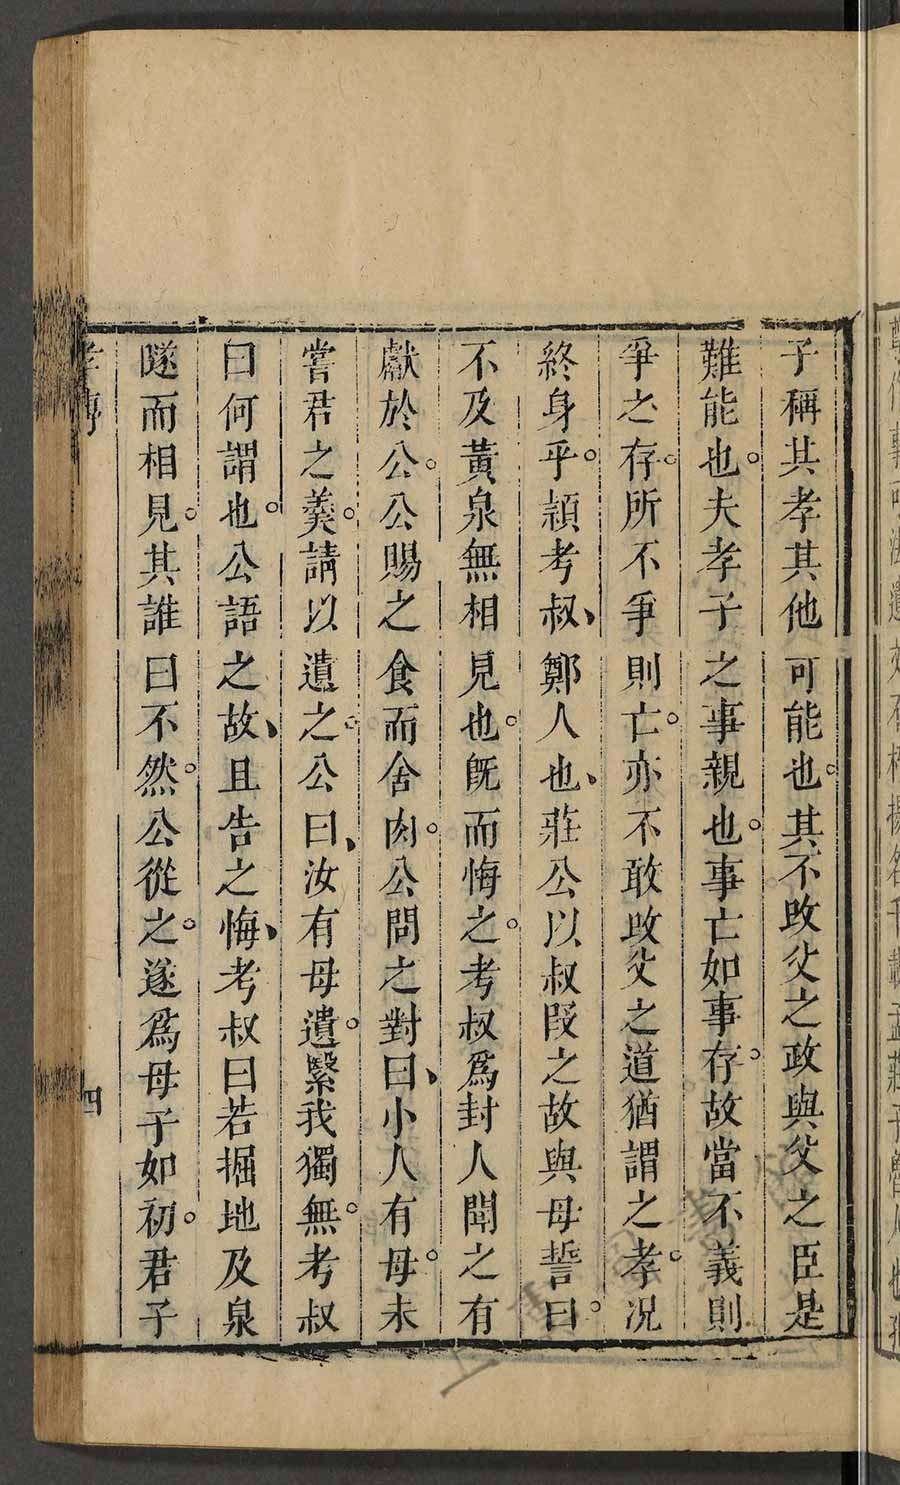 子稱其孝其他可能也。其不改父之政與父之臣是
難能也。夫孝子之事親也。事亡如事存。故當不義則
爭之存。所不爭則亡。亦不敢改父之道猶謂之孝。况
終身乎。頴考叔、鄭人也、莊公以叔段之故與母誓曰。
不及黃泉無相見也。旣而悔之。考叔爲封人聞之有
獻於公。公賜之食而舍肉。公問之對曰、小人有母。未
嘗君之羹。請以遺之。公曰、汝有母遺。繄我獨無。考叔
曰何謂也。公語之故、且告之悔、考叔曰若掘地及泉
隧而相見。其誰曰不然。公從之。遂爲母子如初。君子
孝傳
四